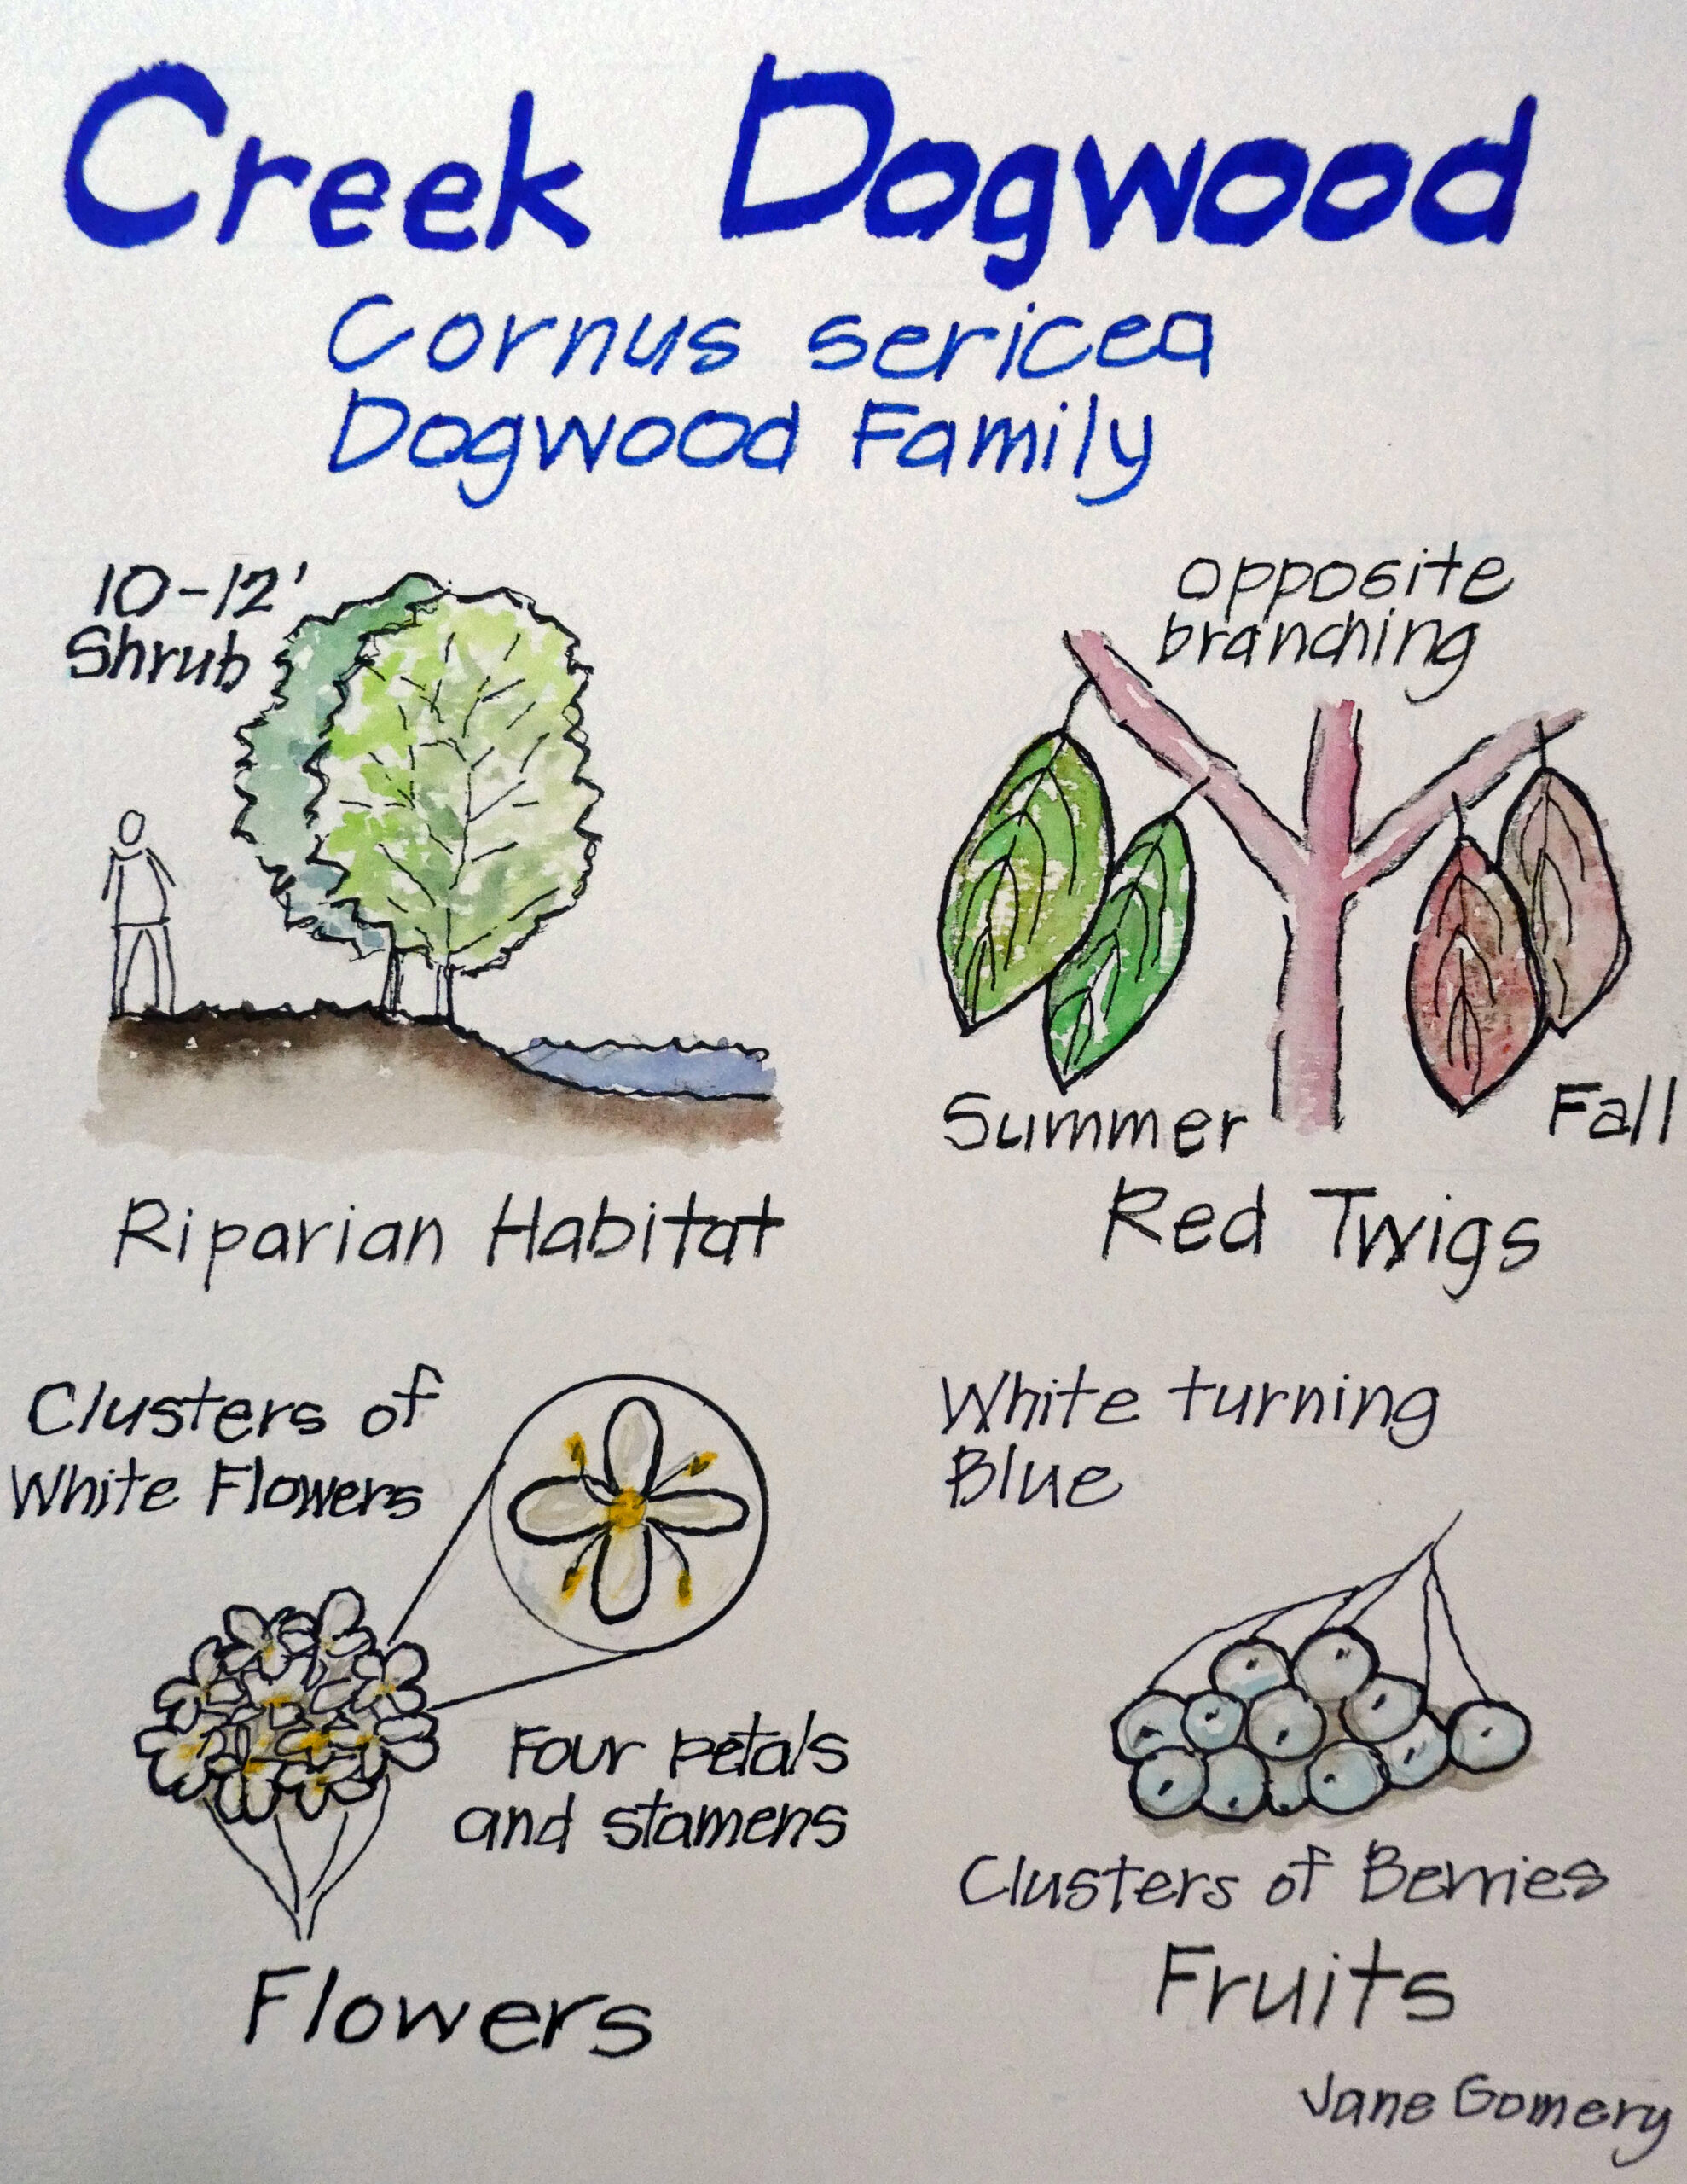 Creek Dogwood
Cornus sericea
Dogwood Family
10-12'
Shrub
opposite
branching
Summer
Fall
Riparian Habitat
Red Twigs
Clusters of
White Flowers
Four petals
and stamens
Flowers
White turning
Blue
Clusters of Berries
Fruits
Jane Gomery